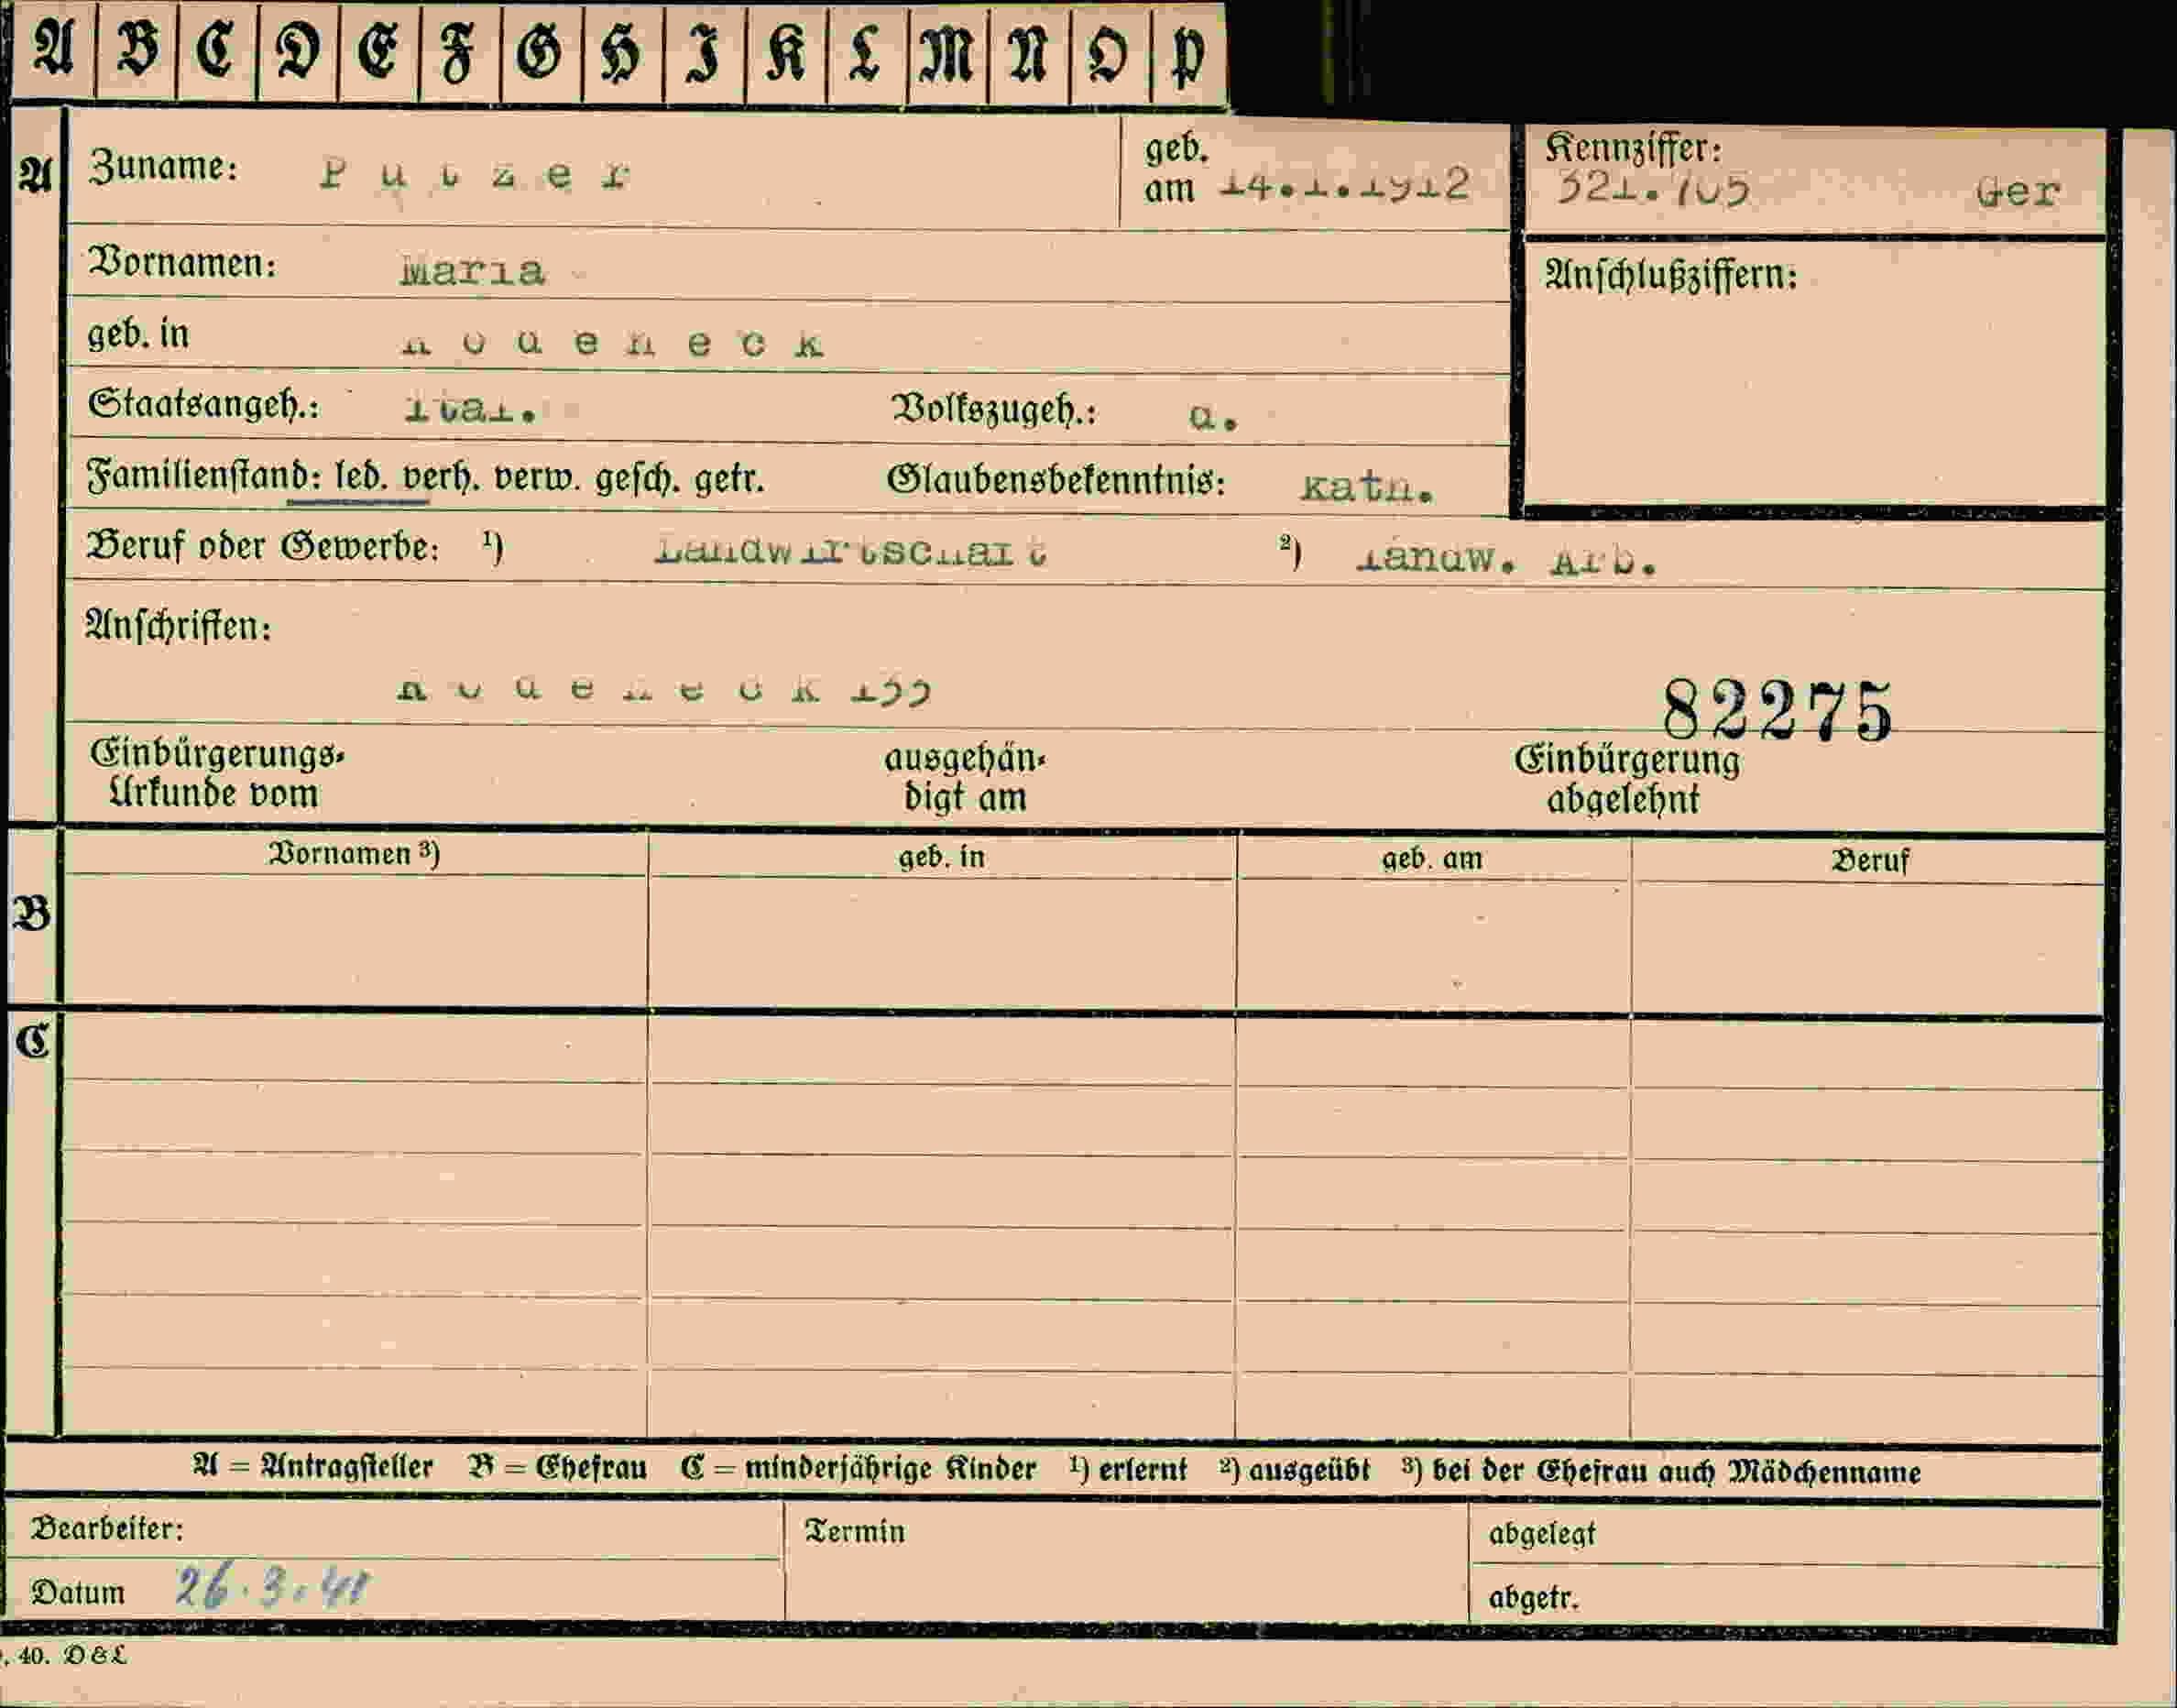 A B C D E F G H I K L M N O P
A Zuname: Putzer geb. am 14.1.1912 Kennziffer: 321.705 Ger
Vornamen: Maria Anschlußziffern:
geb. in Rodeneck
Staatsangeh.: ital. Volkszugeh.: d.
Familienstand: led. verh. verw. gesch. getr. Glaubensbekenntnis: kath.
Beruf oder Gewerbe: ¹) Landwirtschaft ²) landw. Arb.
Anschriften:
Rodeneck 82275
Einbürgerungs- ausgehän- Einbürgerung
Urkunde vom digt am abgelehnt
Vornamen ³) geb. in geb. am Beruf
B
C
A = Antragsteller B = Ehefrau C = minderjährige Kinder ¹) erlernt ²) ausgeübt ³) bei der Ehefrau auch Mädchenname
Bearbeiter: Termin abgelegt
Datum 26.3.41 abgetr.
40. D & L